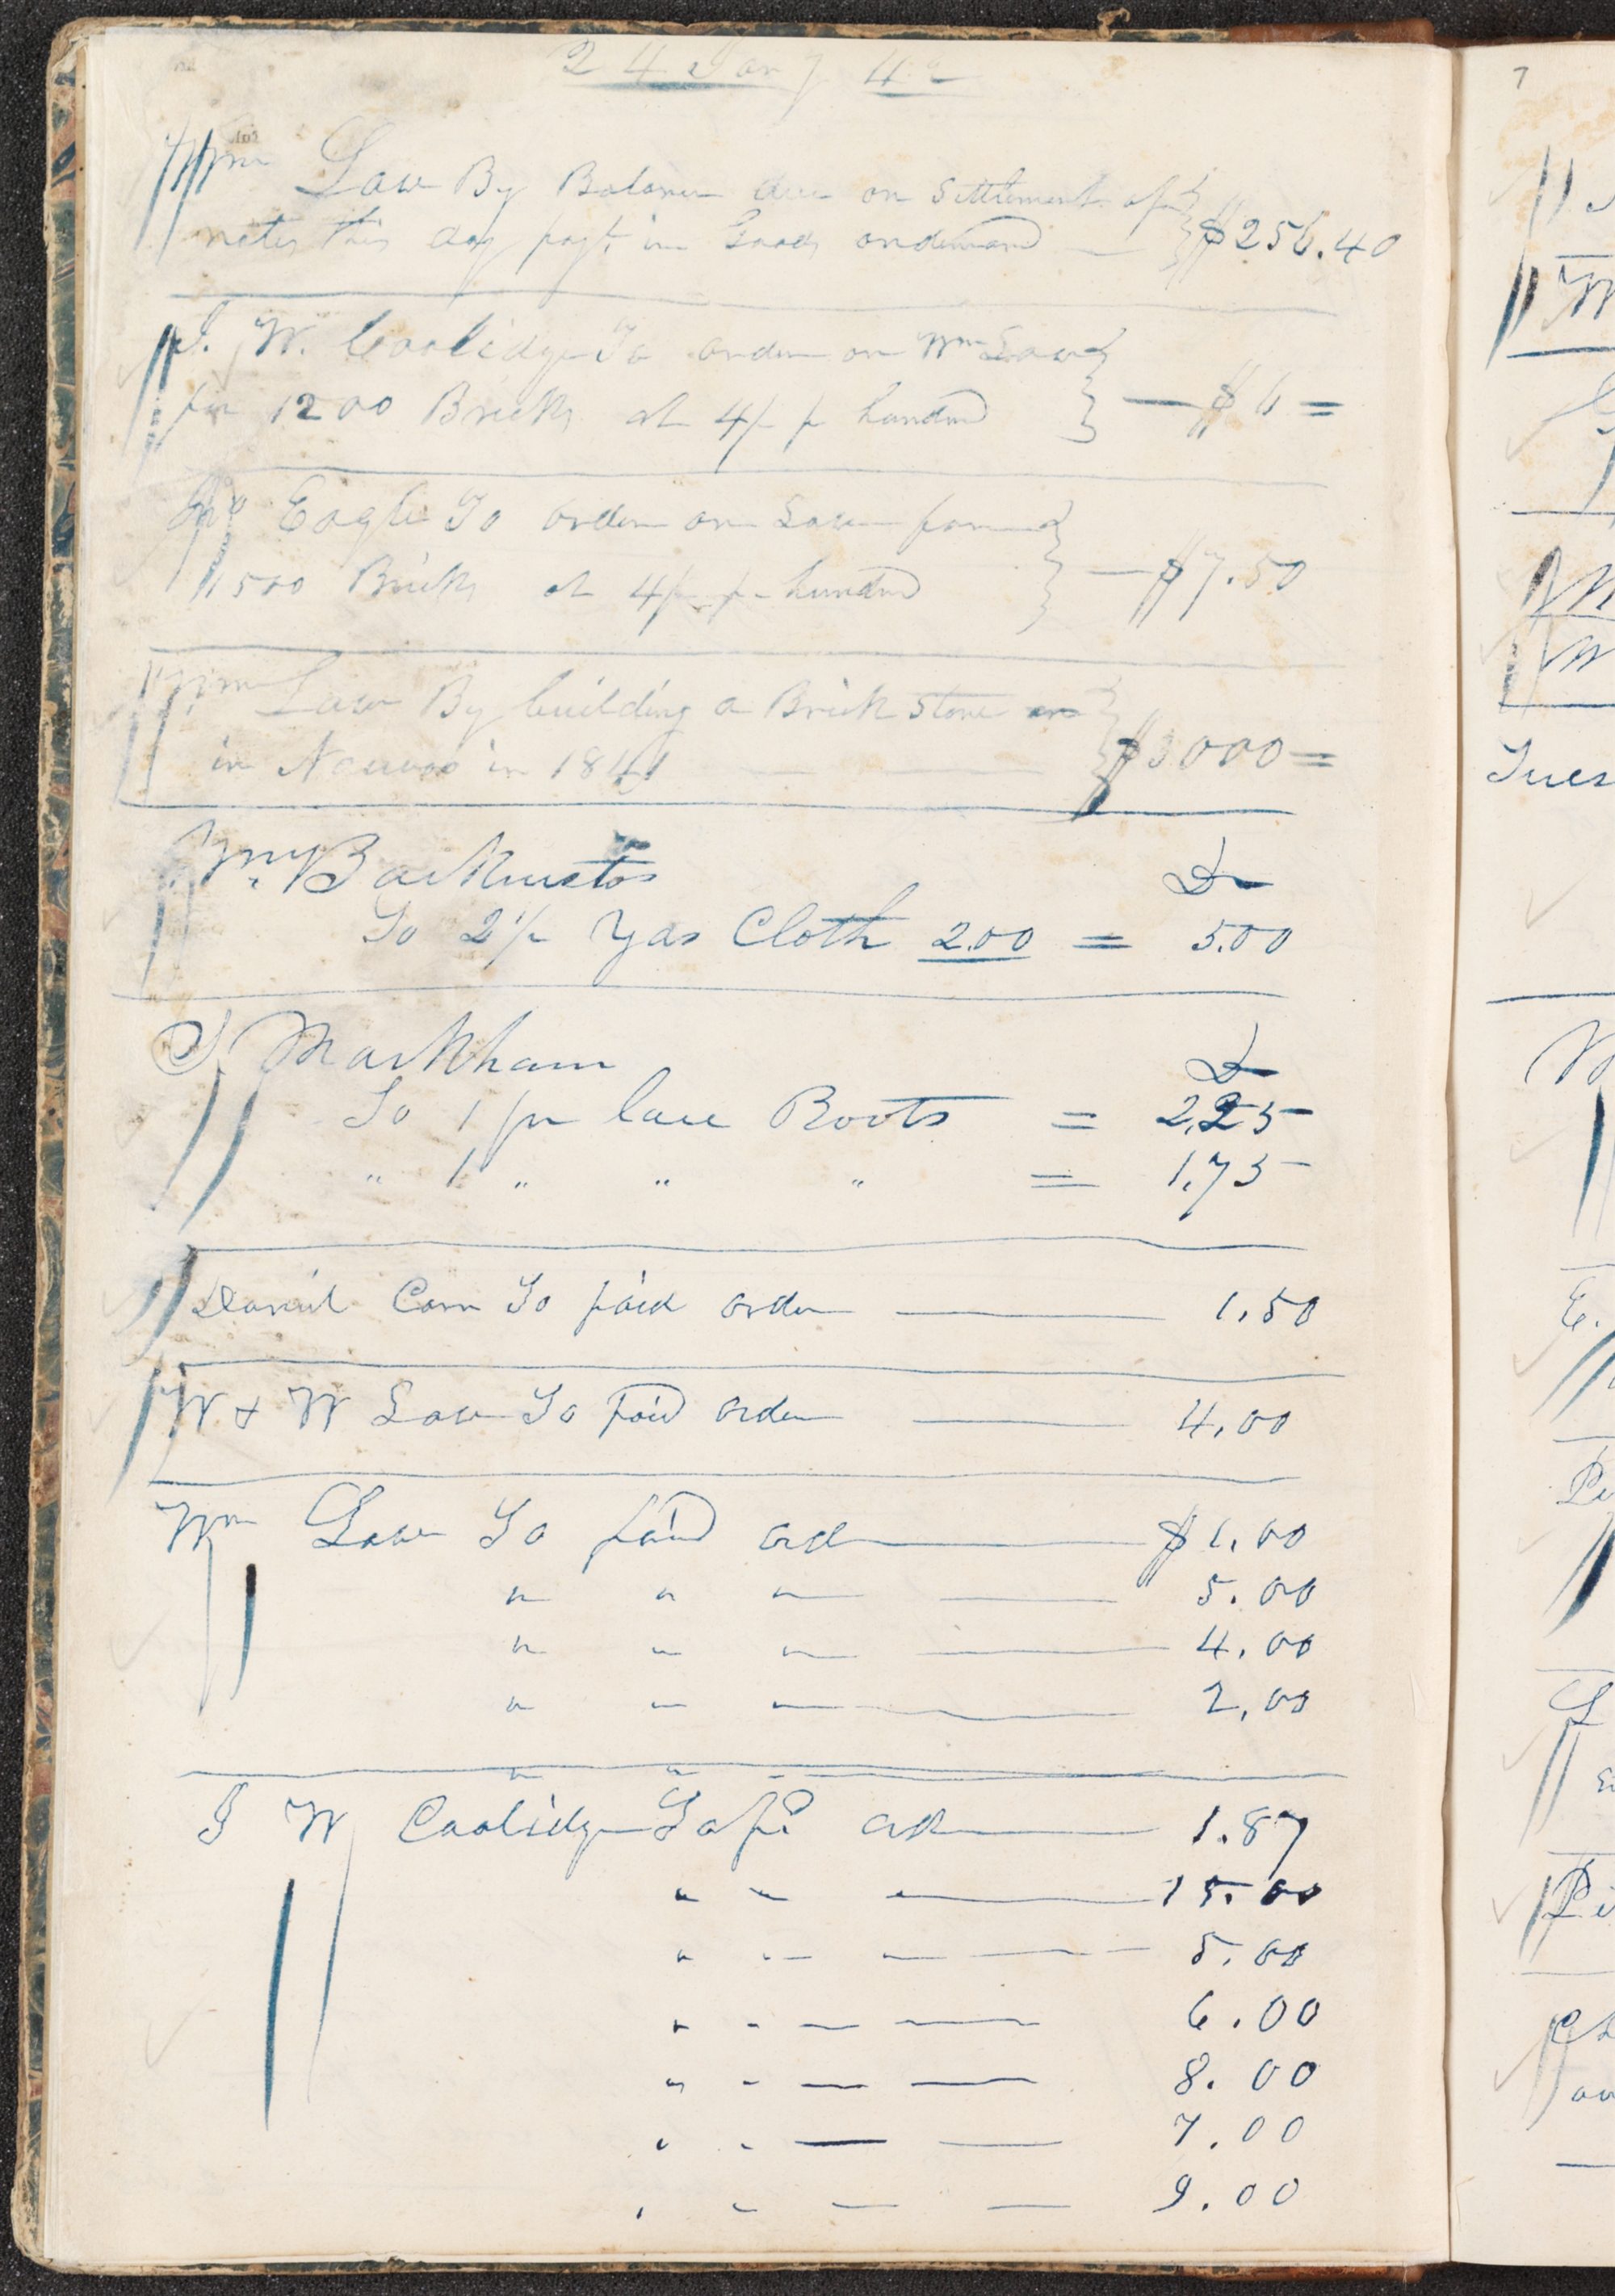 24 Jany 42
Wm Law By Balance due on Settlement of
notes this day payt. in Goods on demand — $256.40
J. W. Coolidge To order on Wm Law
for 1200 Bricks at 4/- p hundred — $6 =
Eagle To order on Law for
1500 Bricks at 4/- p hundred — $7.50
Wm Law By building a Brick Store
in Nauvoo in 1841 — $3000 =
Backenstos Dr
To 2 1/2 Yds Cloth 2.00 = 5.00
S Markham Dr
To 1 pr lace Boots = 2.25
" 1 " " " = 1.75
Daniel Carn To paid order — 1.50
W & W Law To paid order — 4.00
Wm Law To paid ord — $1.00
" " " — 5.00
" " " — 4.00
" " " — 2.00
" " "
J W Coolidge To pd ord — 1.87
" " " — 15.00
" " " — 5.00
" " — — 6.00
" " — — 8.00
" " — — 7.00
" " — — 9.00
7
Tues
E.